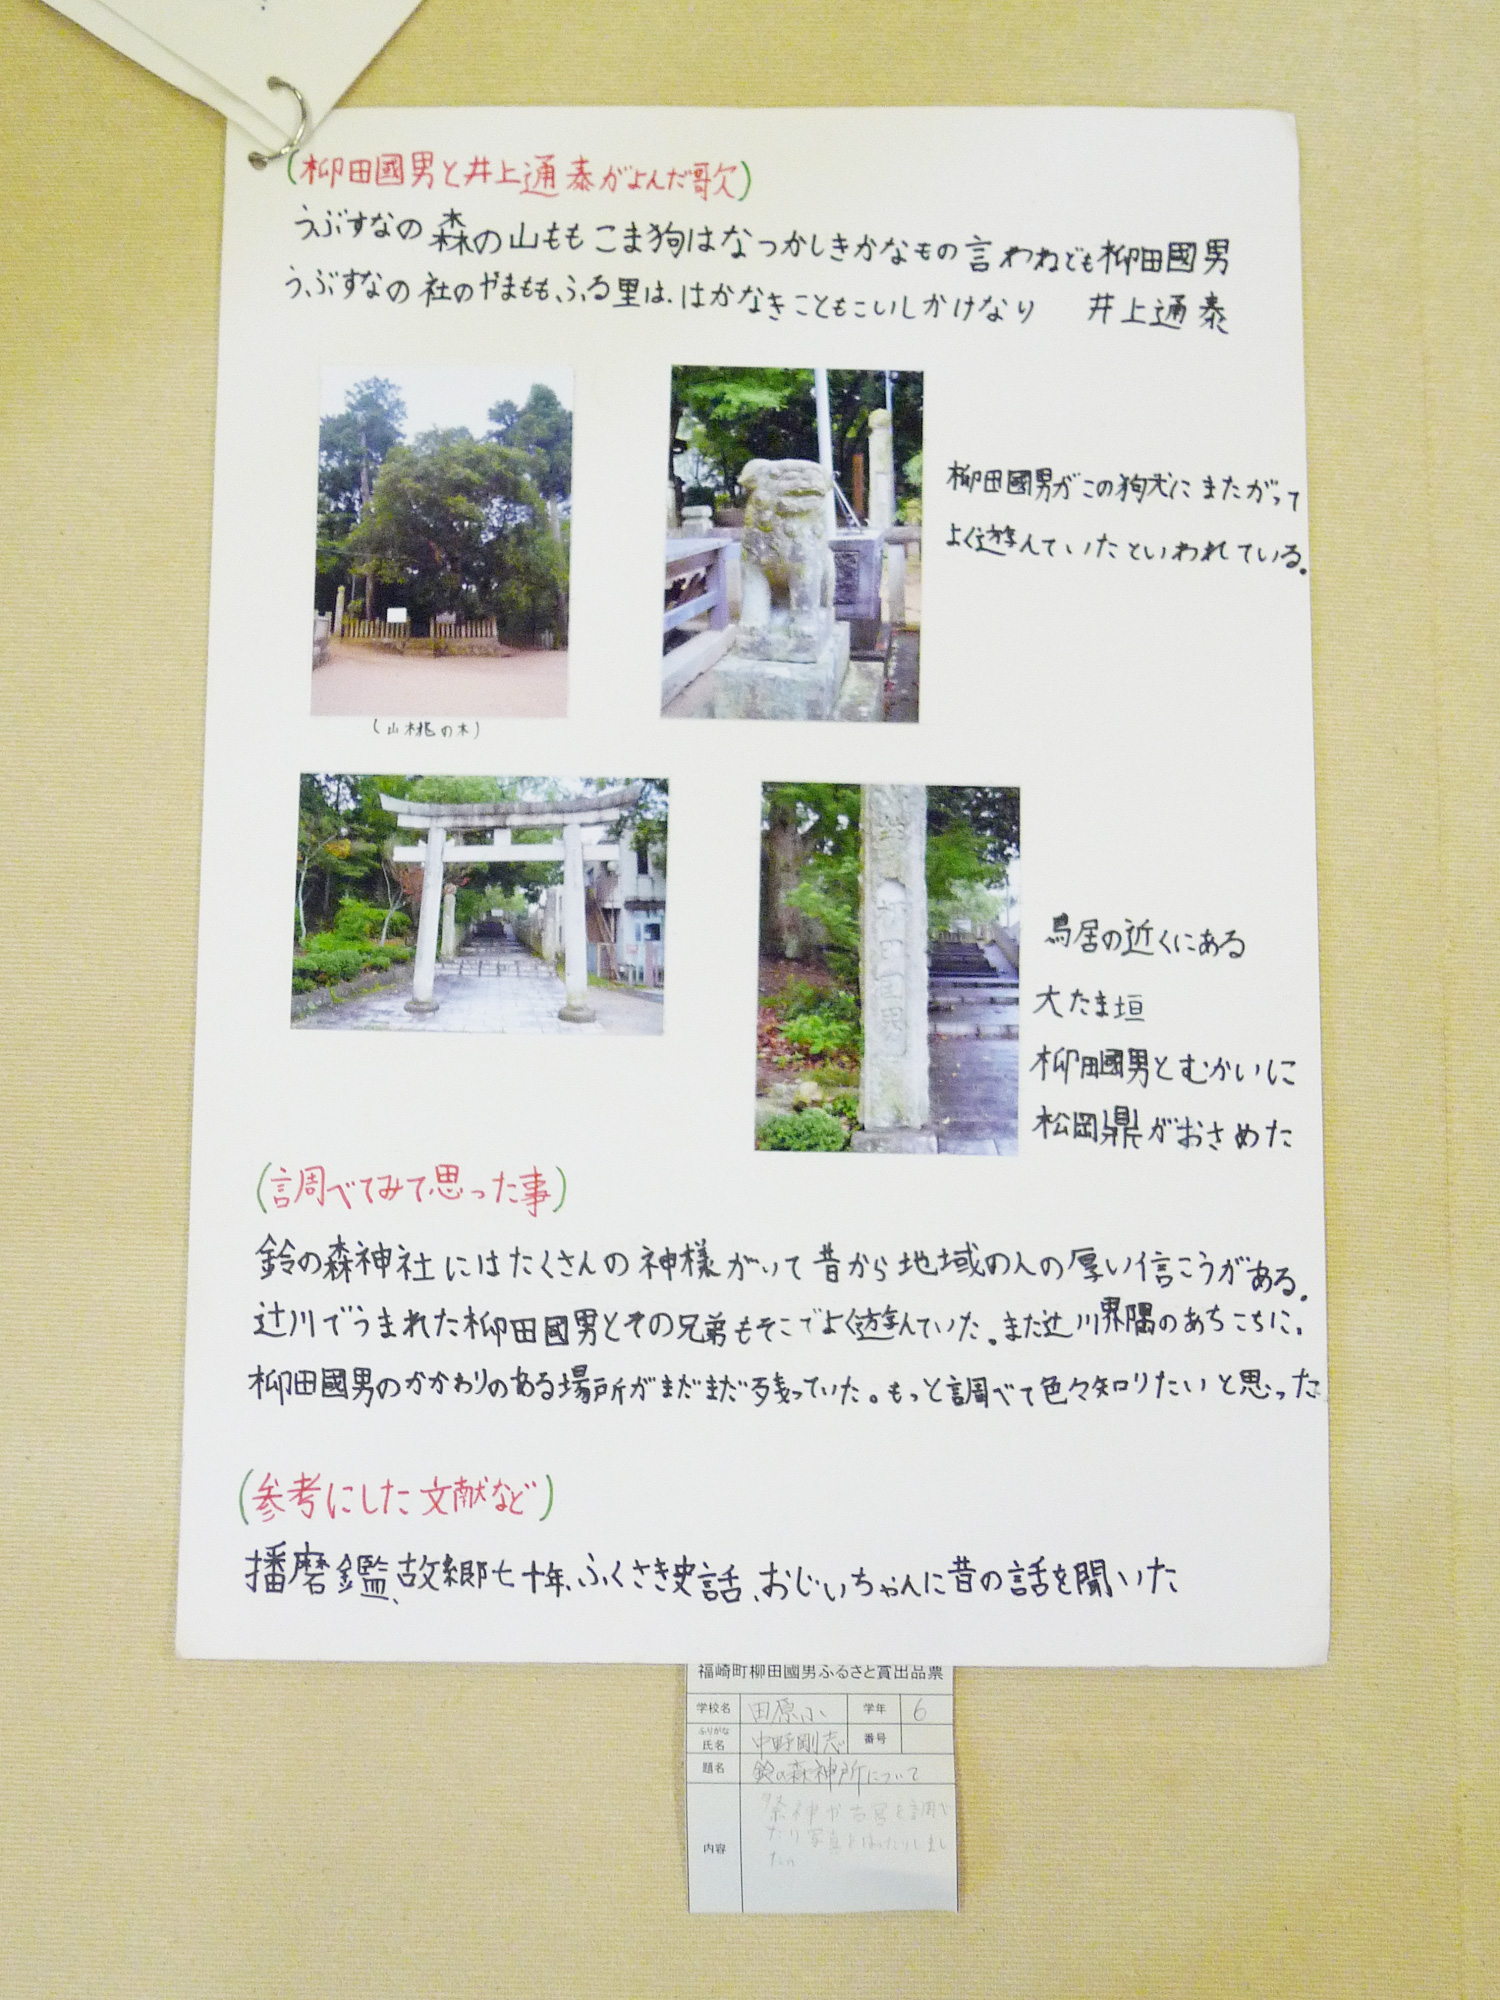 (柳田國男と井上通泰がよんだ歌)
うぶすなの森の山ももこま狗はなつかしきかなもの言わねども柳田國男
うぶすなの社のやまもも、ふる里は、はかなきこともこいしかけなり 井上通泰
柳田國男がこの狗犬にまたがって
よく遊んでいたといわれている。
(山桃の木)
鳥居の近くにある
大たま垣
柳田國男とむかいに
松岡鼎がおさめた
(調べてみて思った事)
鈴の森神社にはたくさんの神様がいて昔から地域の人の厚い信こうがある。
辻川でうまれた柳田國男とその兄弟もそこでよく遊んでいた。また辻川界隈のあちこちに、
柳田國男のかかわりのある場所がまだまだ残っていた。もっと調べて色々知りたいと思った
(参考にした文献など)
播磨鑑、故郷七十年、ふくさき史話、おじいちゃんに昔の話を聞いた
福崎町柳田國男ふるさと賞出品票
学校名 田原小 学年 6
ふりがな
氏名 中野剛志 番号
題名 鈴の森神所について
内容 祭神や古宮を調べ
たり写真をはったりしまし
た。